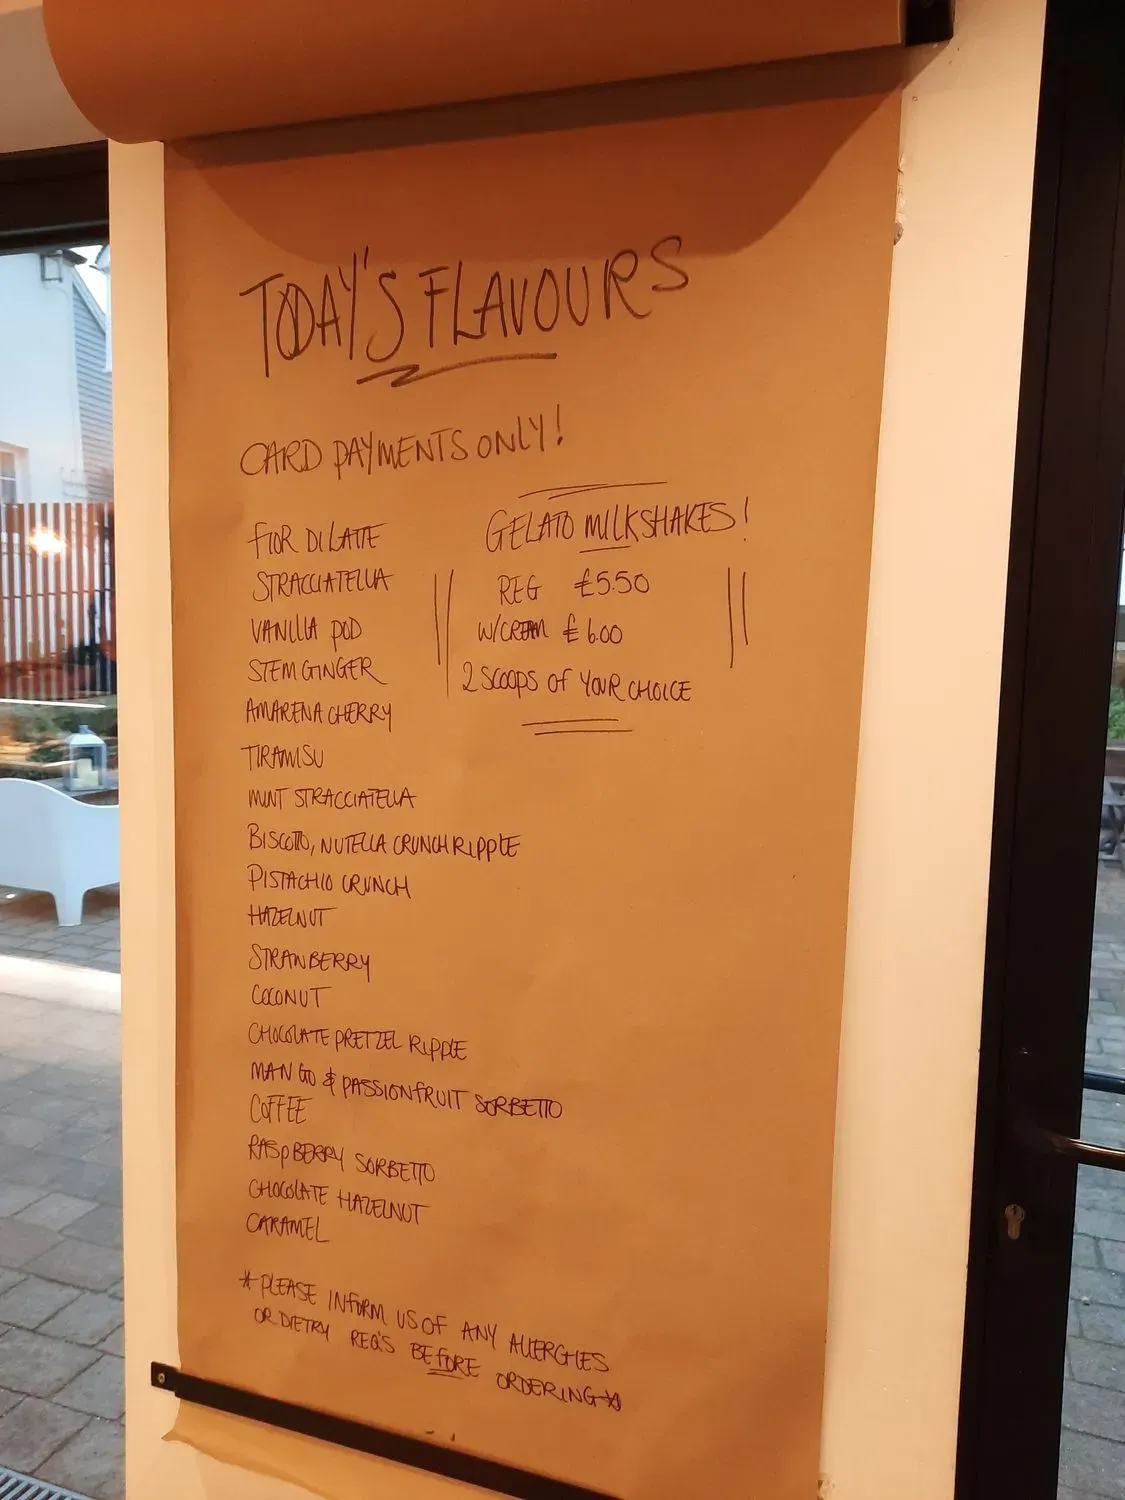 TODAY'S FLAVOURS
CARD PAYMENTS ONLY!
FIOR DI LATTE
STRACCIATELLA
VANILLA POD
STEM GINGER
AMARENA CHERRY
TIRAMISU
MINT STRACCIATELLA
BISCOTTO, NUTELLA CRUNCH RIPPLE
PISTACHIO CRUNCH
HAZELNUT
STRAWBERRY
COCONUT
CHOCOLATE PRETZEL RIPPLE
MANGO & PASSIONFRUIT SORBETTO
COFFEE
RASPBERRY SORBETTO
CHOCOLATE HAZELNUT
CARAMEL
GELATO MILKSHAKES!
REG £5.50
W/CREAM £6.00
2 SCOOPS OF YOUR CHOICE
*PLEASE INFORM US OF ANY ALLERGIES
OR DIETRY REQ'S BEFORE ORDERING